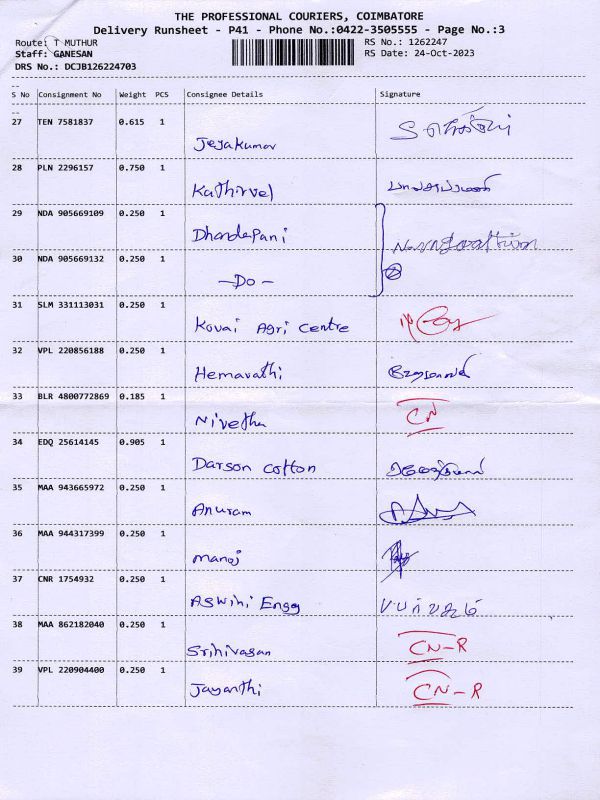 THE PROFESSIONAL COURIERS, COIMBATORE
Delivery Runsheet - P41 - Phone No.:0422-3505555 - Page No.:3
Route: T MUTHUR
RS No.: 1262247
Staff: GANESAN
RS Date: 24-Oct-2023
DRS No.: DCJB126224703
S No Consignment No Weight PCS Consignee Details Signature
27 TEN 7581837 0.615 1
Jeyakumar
28 PLN 2296157 0.750 1
Kathirvel
29 NDA 905669109 0.250 1
DhandaPani
30 NDA 905669132 0.250 1
-Do-
2
31 SLM 331113031 0.250 1
Kovai Agri Centre
32 VPL 220856188 0.250 1
Hemavathi
33 BLR 4800772869 0.185 1
Nivetha CN
34 EDQ 25614145 0.905 1
Darson Cotton
35 MAA 943665972 0.250 1
Anuram
36 MAA 944317399 0.250 1
Manoj
37 CNR 1754932 0.250 1
Aswini Engg
38 MAA 862182040 0.250 1
Srinivasan CN-R
39 VPL 220904400 0.250 1
Jayanthi CN-R